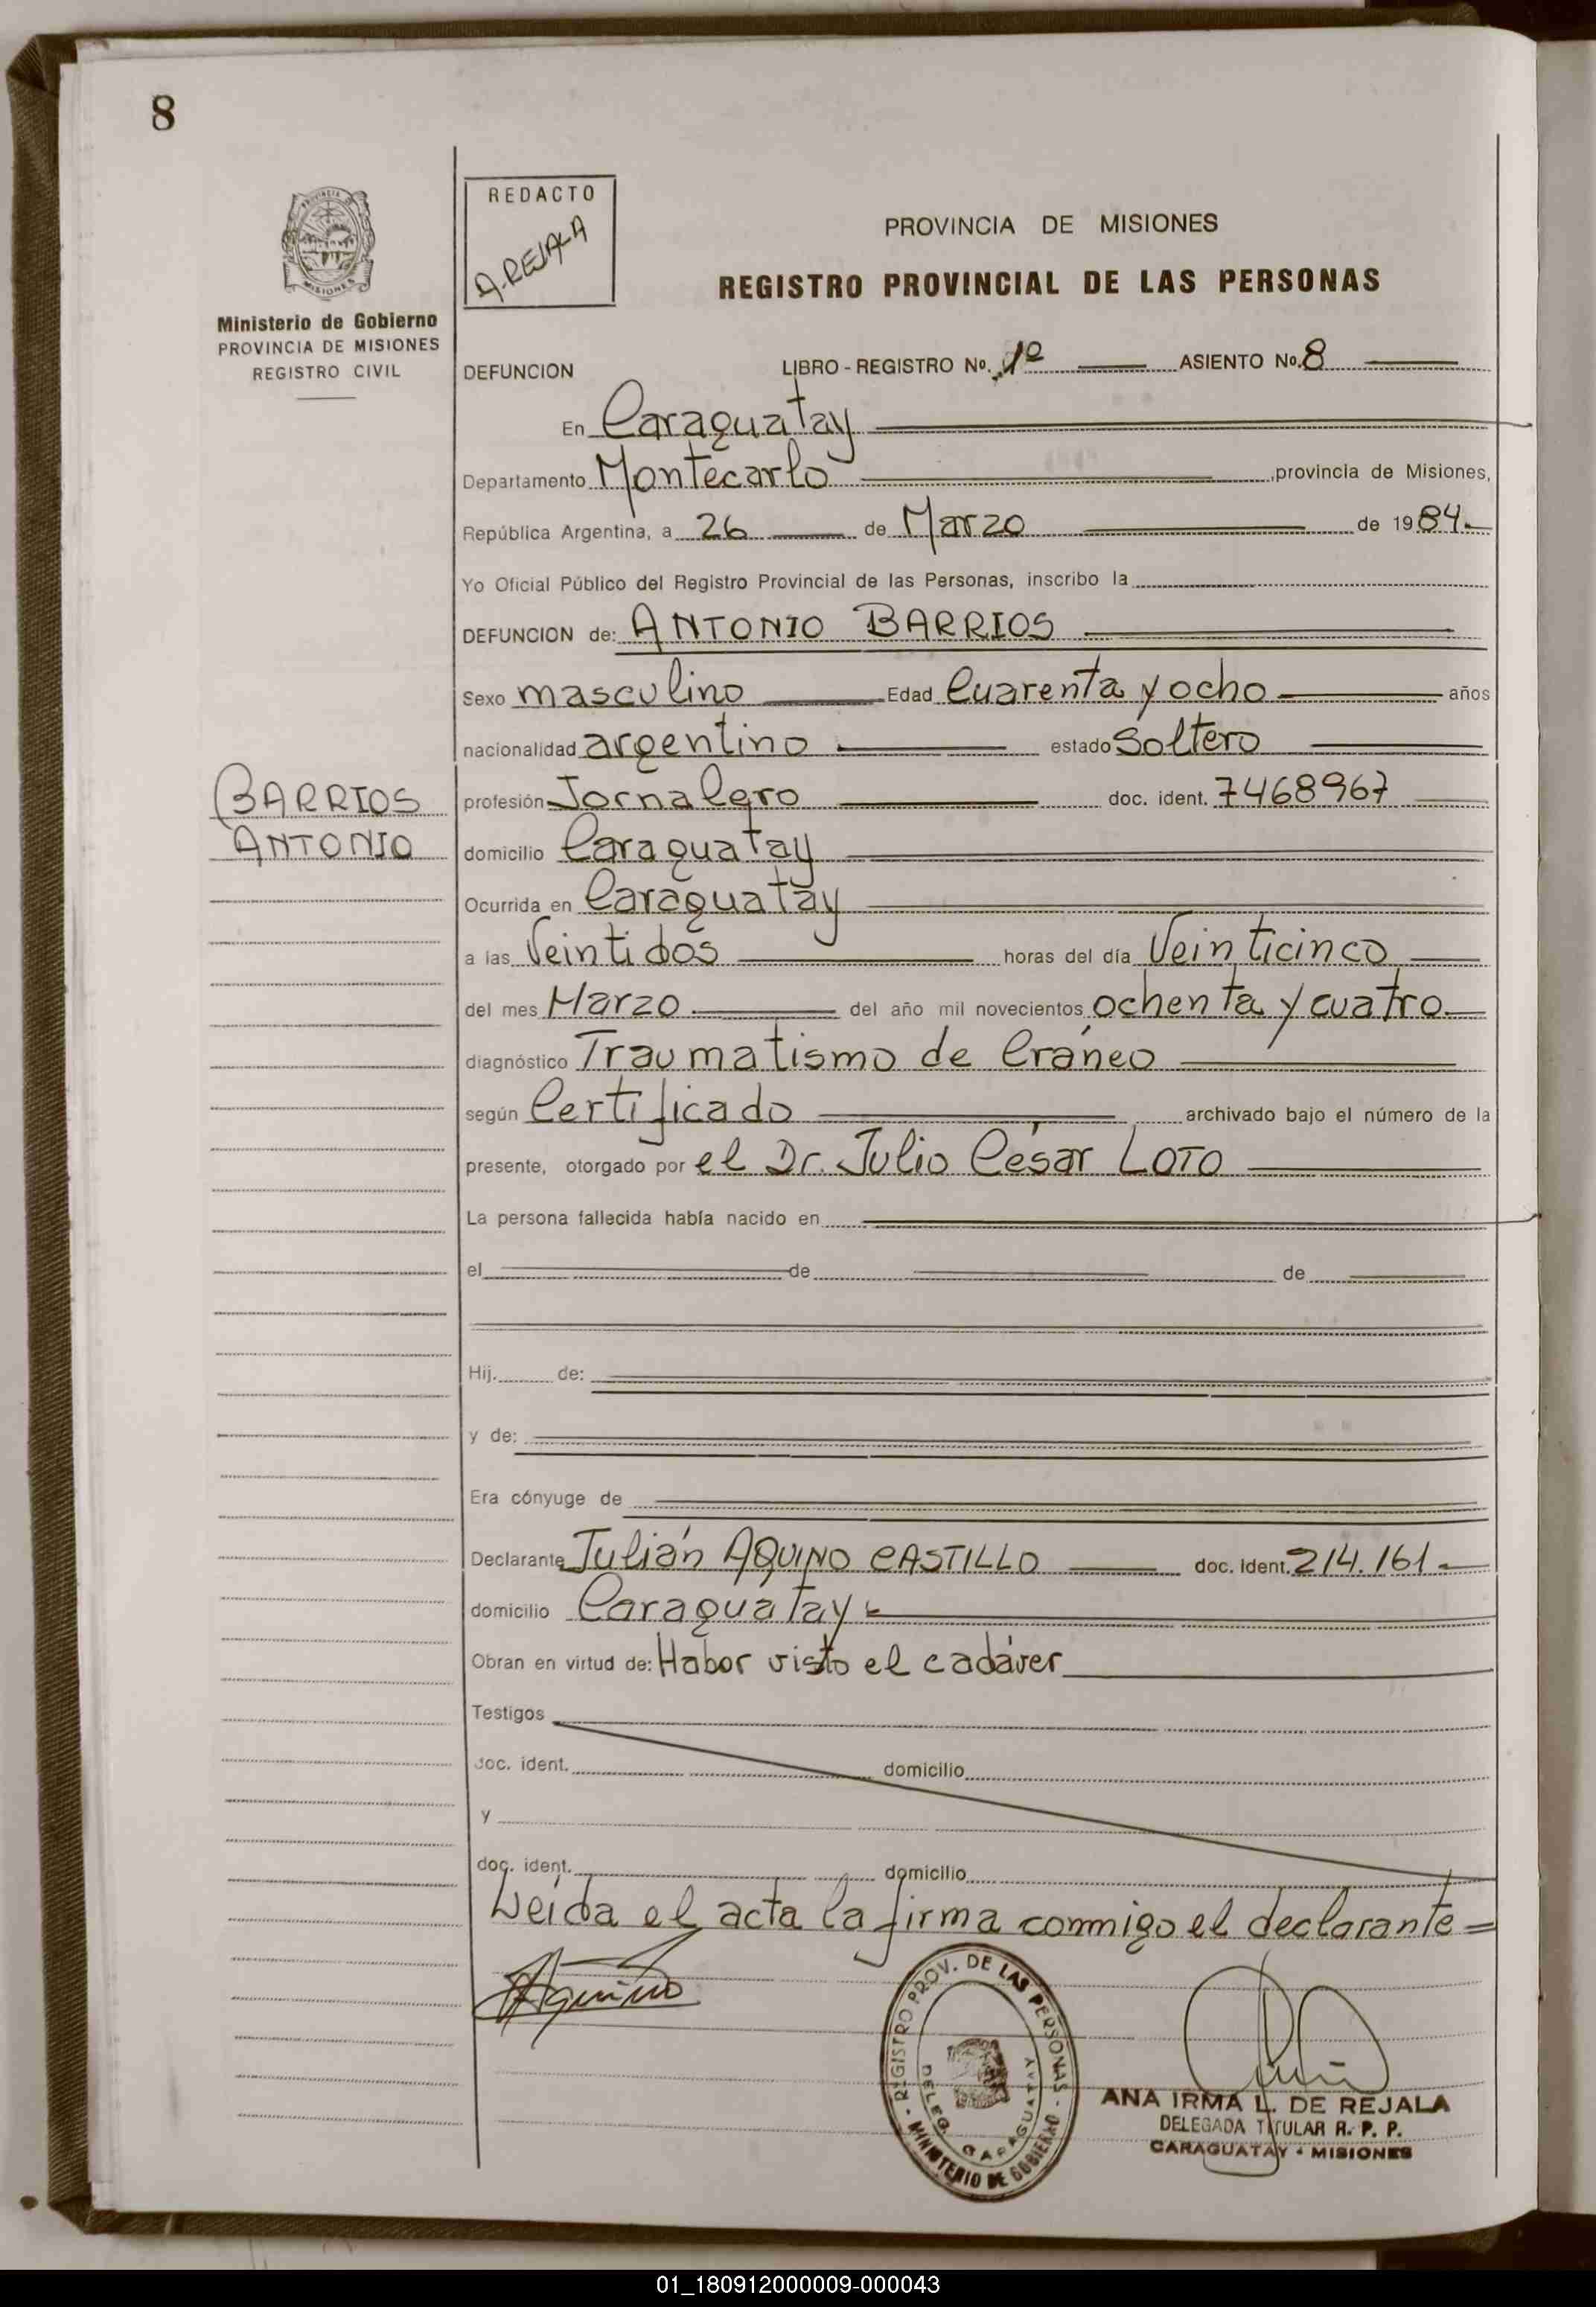 8
REDACTO
A. REJALA
PROVINCIA DE MISIONES
REGISTRO PROVINCIAL DE LAS PERSONAS
Ministerio de Gobierno
PROVINCIA DE MISIONES
REGISTRO CIVIL
DEFUNCION LIBRO - REGISTRO No. 1º ASIENTO No. 8
En Caraguatay
Departamento Montecarlo , provincia de Misiones,
República Argentina, a 26 de Marzo de 1984.
Yo Oficial Público del Registro Provincial de las Personas, inscribo la
DEFUNCION de: ANTONIO BARRIOS
Sexo masculino Edad Cuarenta y ocho años
nacionalidad argentino estado Soltero
BARRIOS
ANTONIO
profesión Jornalero doc. ident. 7468967
domicilio Caraguatay
Ocurrida en Caraguatay
a las Veintidos horas del día Veinticinco
del mes Marzo del año mil novecientos ochenta y cuatro
diagnóstico Traumatismo de Cráneo
según Certificado archivado bajo el número de la
presente, otorgado por el Dr. Julio César LOTO
La persona fallecida había nacido en
el de de
Hij. de:
y de:
Era cónyuge de
Declarante Julián AQUINO CASTILLO doc. Ident. 214.161
domicilio Caraguatay
Obran en virtud de: Habor visto el cadáver
Testigos
doc. ident. domicilio
y
doc. ident. domicilio
Leída el acta la firma conmigo el declarante =
Aquino
REGISTRO PROV. DE LAS PERSONAS - MINISTERIO DE GOBIERNO -
DELEG. CARAGUATAY
ANA IRMA L. DE REJALA
DELEGADA TITULAR R. P. P.
CARAGUATAY - MISIONES
01_180912000009-000043